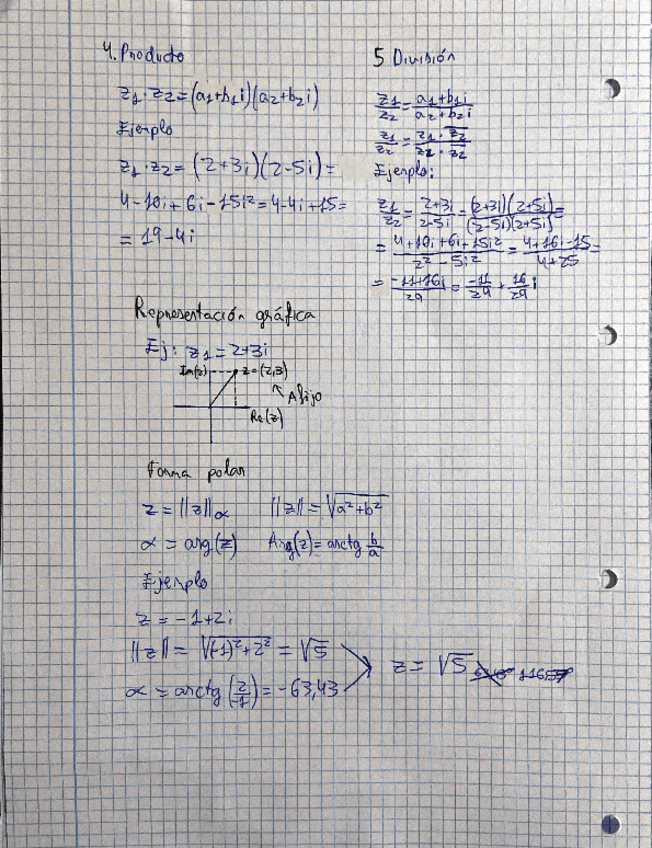 4. Producto
z₁·z₂=(a₁+b₁i)(a₂+b₂i)
Ejemplo
z₁·z₂=(2+3i)(2-5i)=
4-10i+6i-15i²=4-4i+15=
=19-4i
5 División
z₁/z₂=(a₁+b₁i)/(a₂+b₂i)
z₁/z₂=(z₁·z̅₂)/(z₂·z̅₂)
Ejemplo:
z₁/z₂=(2+3i)/(2-5i)=((2+3i)(2+5i))/((2-5i)(2+5i))=
=(4+10i+6i+15i²)/(2²-5i²)=(4+16i-15)/(4+25)=
=(-11+16i)/29=-11/29+16/29 i
Representación gráfica
Ej: z₁=2+3i
Im(z) z=(2,3)
Afijo
Re(z)
Forma polar
z=||z||α ||z||=√(a²+b²)
α=arg(z) Arg(z)=arctg b/a
Ejemplo
z=-1+2i
||z||=√((-1)²+2²)=√5
α=arctg(2/-1)=-63,43
z=√5 116,57